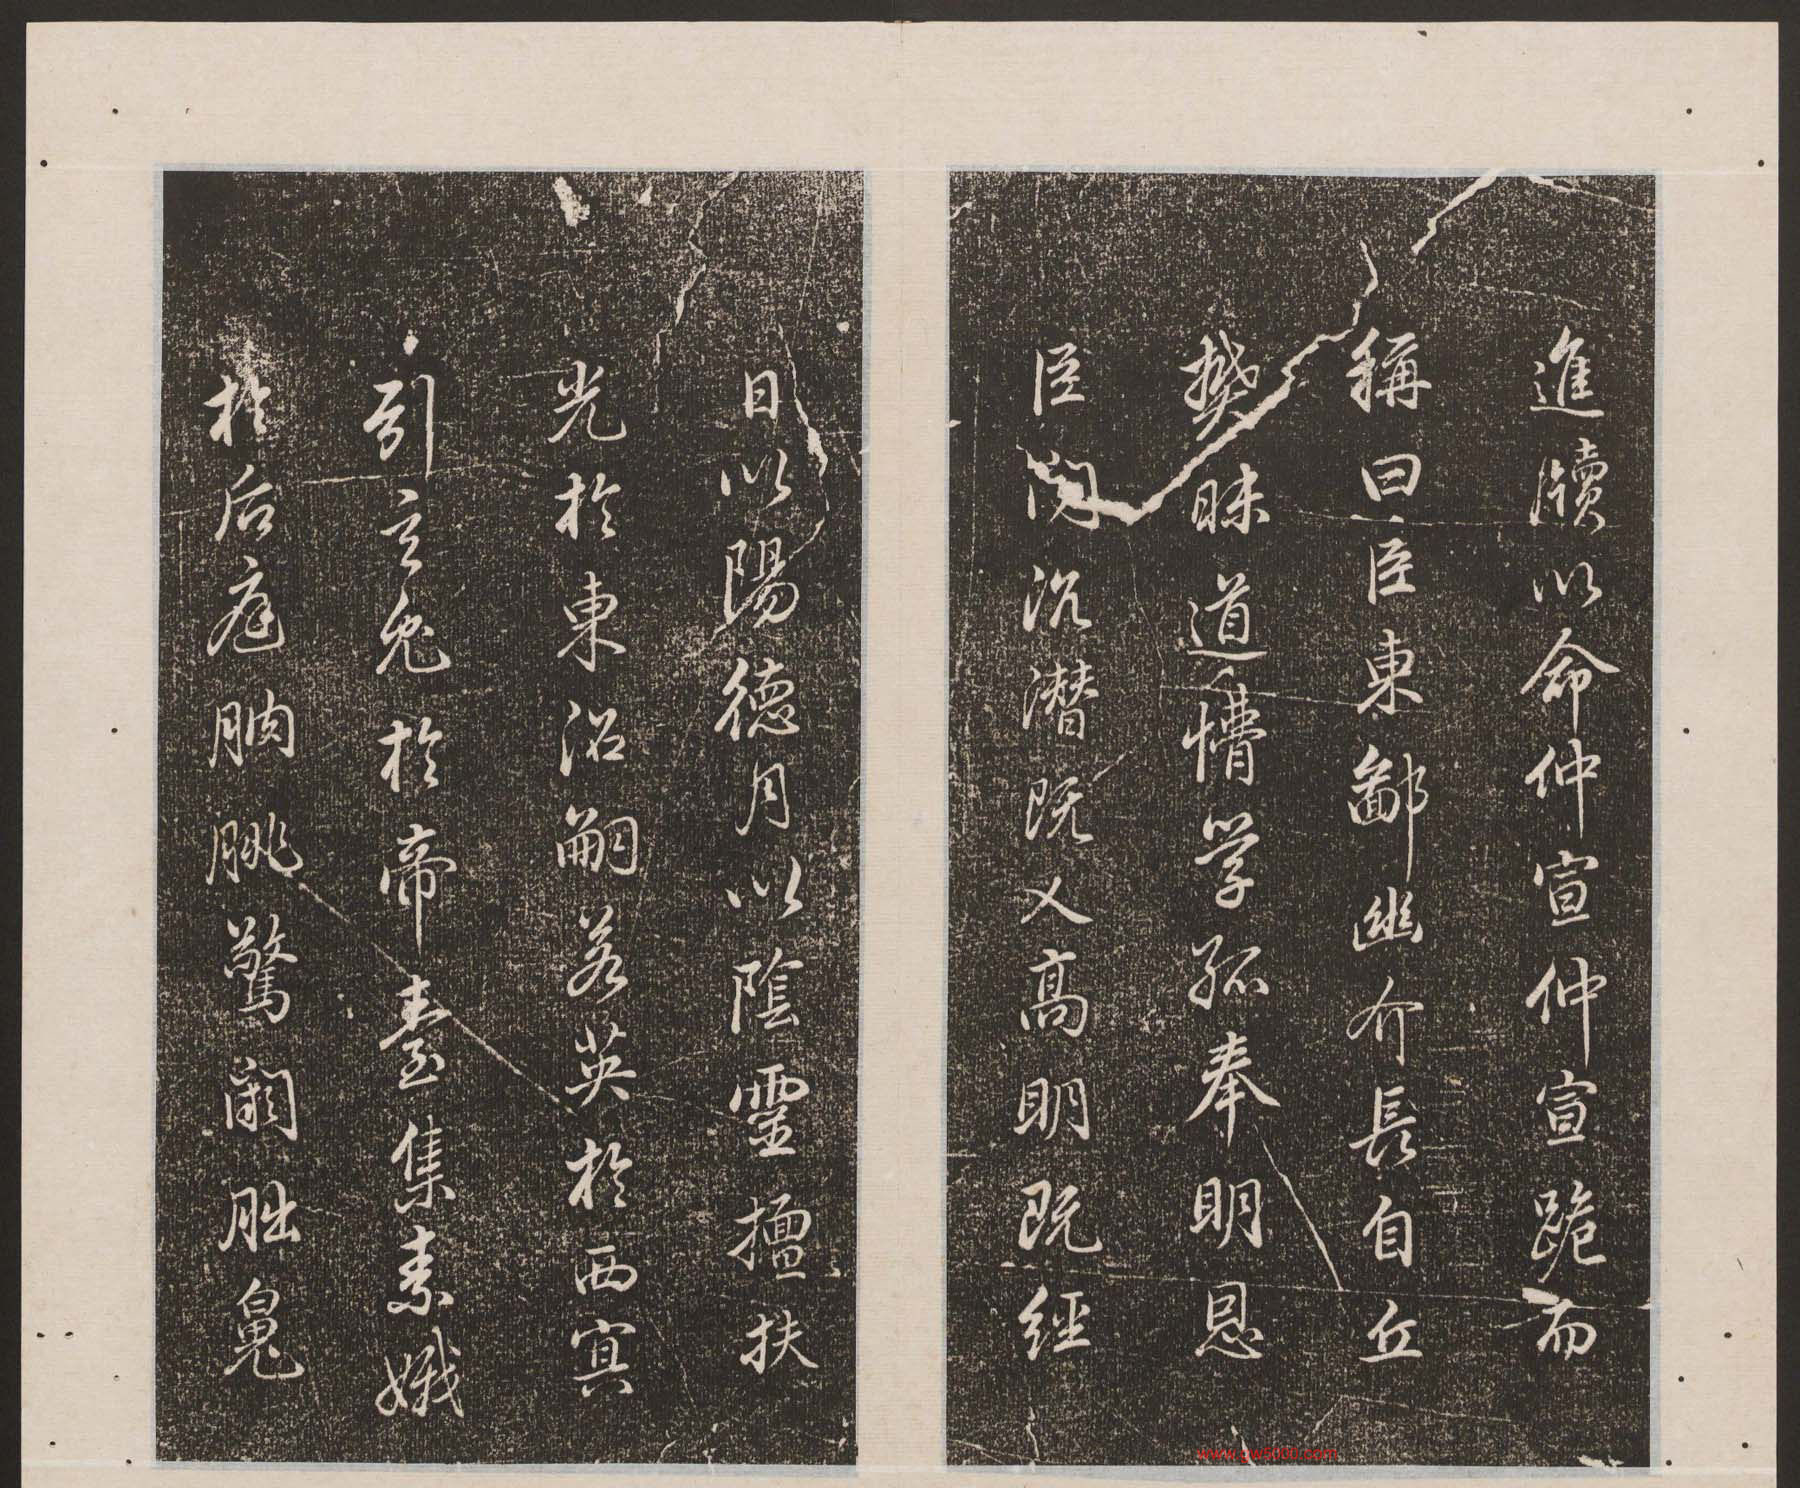 進牘以命仲宣仲宣跪而
稱曰臣東鄙幽介長自丘
樊昧道懵学孤奉明恩
臣聞沉潛既乂高明既經
日以陽德月以陰靈擅扶
光於東沼嗣若英於西冥
引玄兔於帝臺集素娥
於后庭朒朓驚闕朏魄
www.gw5000.com